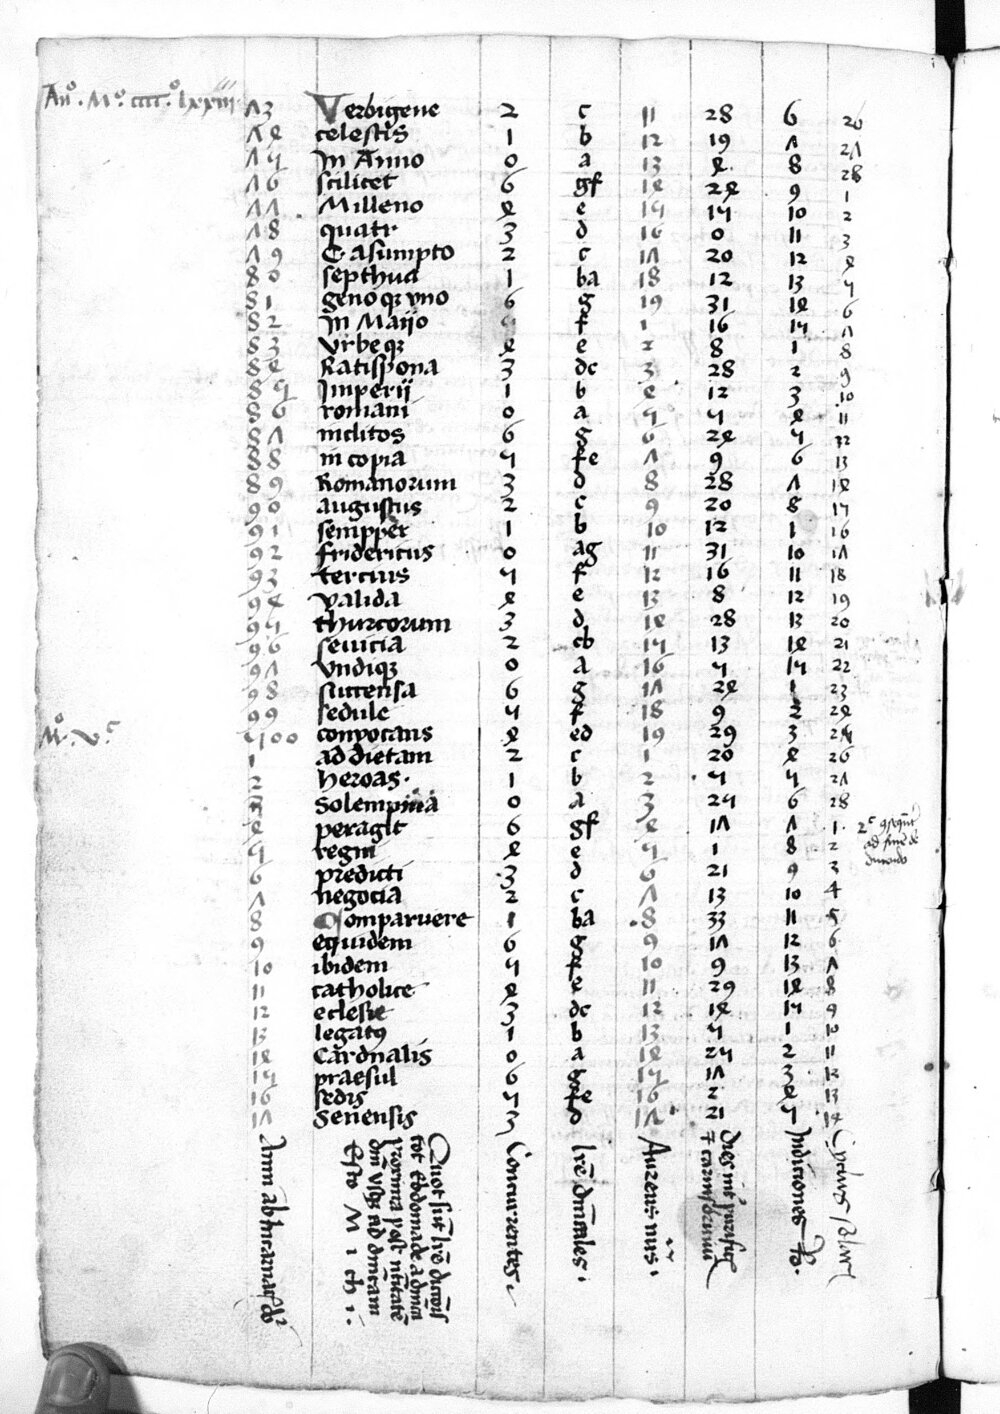 An̄o. Mo. ccccº. lxxiii 73 Verbigene 2 c 11 28 6 26
74 celestis 1 b 12 19 7 27
75 In Anno 0 a 13 4 8 28
76 scilicet 6 gf 14 24 9 1
77 Milleno 4 e 15 15 10 2
78 quatr 3 d 16 0 11 3
79 C Asumpto 2 c 17 20 12 4
80 septhua 1 ba 18 12 13 5
81 genoqꝫ vno 6 g 19 31 14 6
82 In Maijo 5 f 1 16 15 7
83 Vrbeqꝫ 4 e 2 8 1 8
84 Ratispona 3 dc 3 28 2 9
85 Imperij 1 b 4 12 3 10
86 romani 0 a 5 5 4 11
87 inclitos 6 g 6 24 5 12
88 in copia 5 fe 7 9 6 13
89 Romanorum 3 d 8 28 7 14
90 augustus 2 c 9 20 8 15
91 sempper 1 b 10 12 1 16
92 fridericus 0 ag 11 31 10 17
93 tercius 5 f 12 16 11 18
94 valida 4 e 13 8 12 19
95 thurcorum 3 d 14 28 13 20
96 seuicia 2 cb 15 13 14 21
97 vndiqꝫ 0 a 16 5 15 22
98 succensa 6 g 17 24 1 23
99 sedule 5 f 18 9 2 24
Mº. vc 500 conuocans 4 ed 19 29 3 25
1 ad dietam 2 c 1 20 4 26
2 heroas. 1 b 2 5 5 27
3 Solempnia 0 a 3 25 6 28
4 peragit 6 gf 4 17 7 1
5 regni 4 e 5 1 8 2
6 predicti 3 d 6 21 9 3
7 negocia 2 c 7 13 10 4
8 Comparuere 1 ba 8 33 11 5
9 equidem 6 g 9 17 12 6
10 ibidem 5 f 10 9 13 7
11 catholice 4 e 11 29 14 8
12 eclesie 3 dc 12 14 15 9
13 legatꝰ 1 b 13 5 1 10
14 Cardnalis 0 a 14 25 2 11
15 praesul 6 g 15 17 3 12
16 sedis 5 fe 16 2 4 13
17 Senensis 3 d 17 21 5 14
Anni ab Incarnat
Quot sūt lrē dictōis
tot Ebdomade a dmca
proxima post
vsqꝫ ad dmcam
Esto M i ch i.
Concurrentes.
lrē dmcales.
Aureus nus.
dies int purific
Indiciones
Cyclus solar